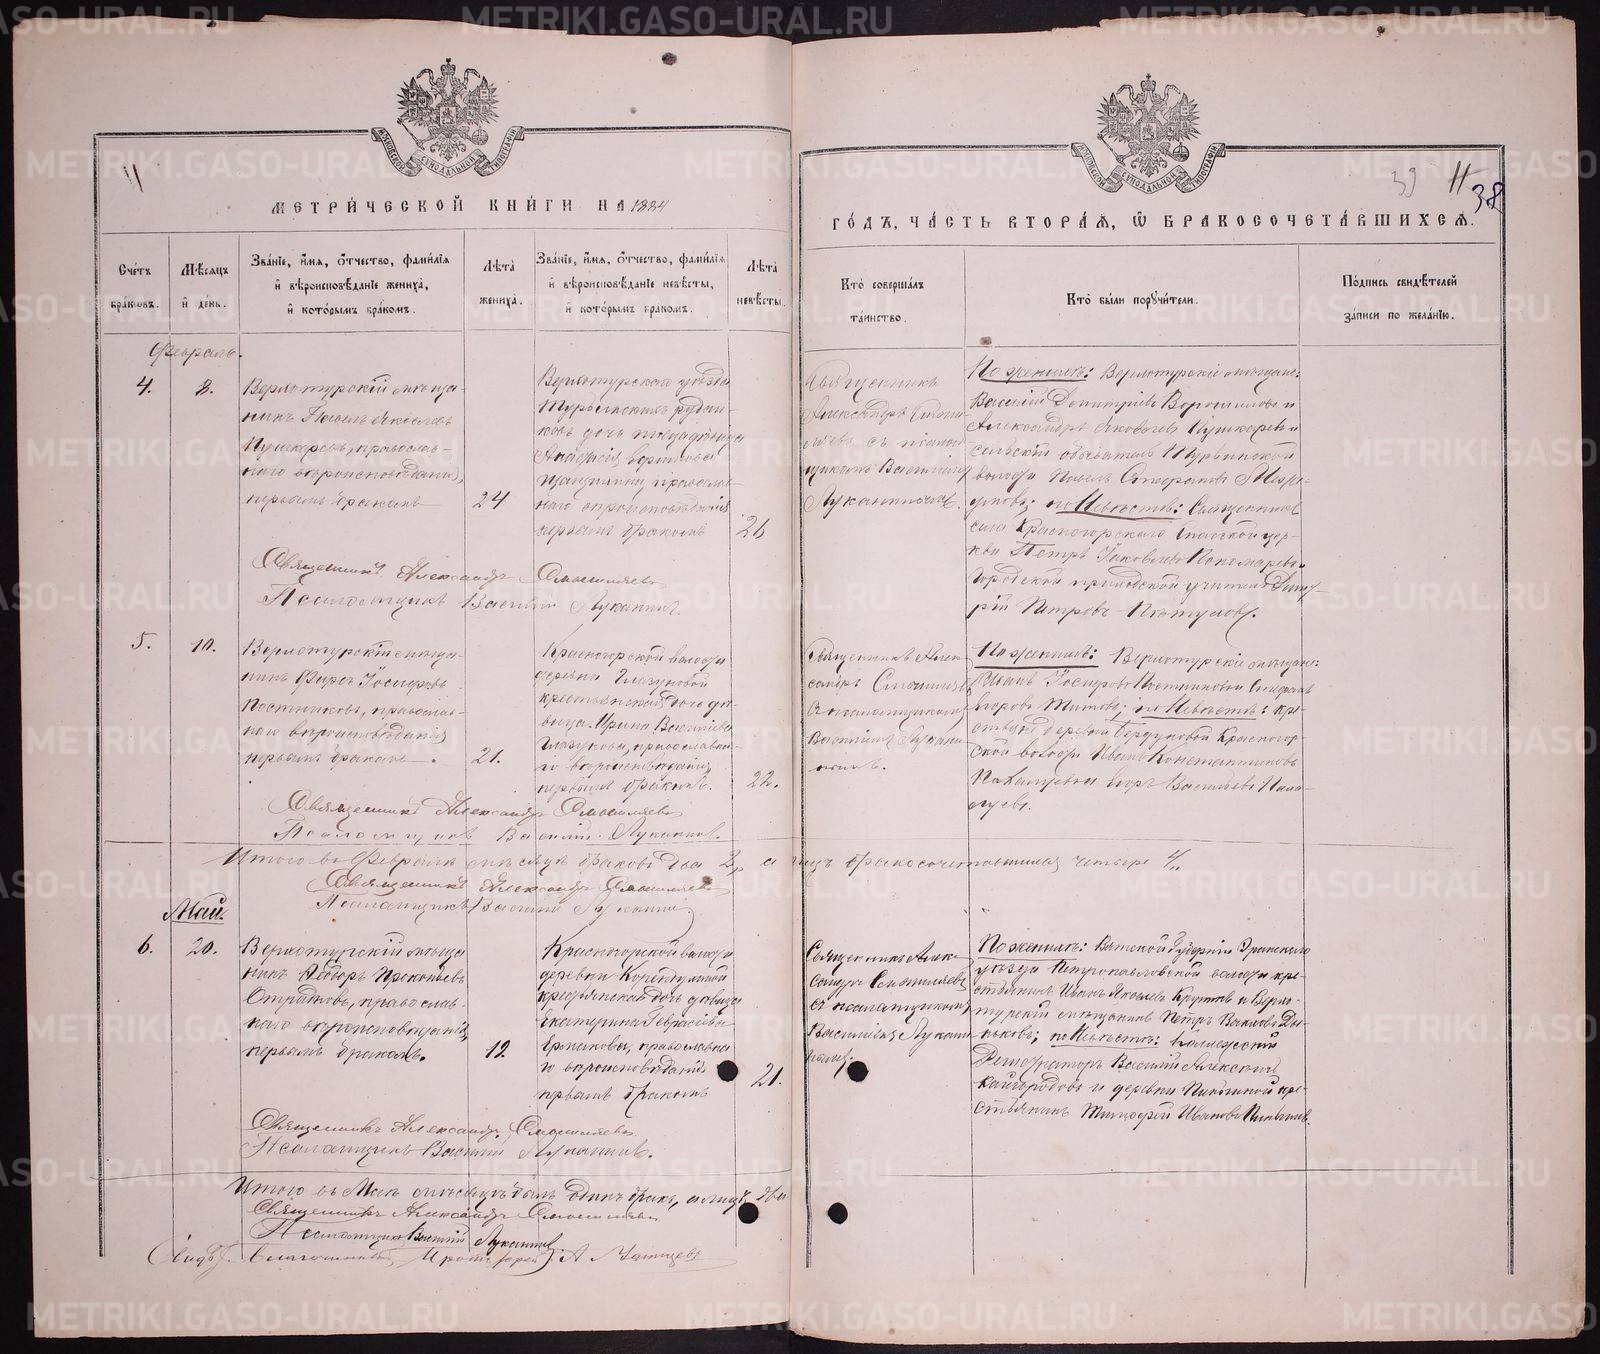 МЕТРИ́ЧЕСКОЙ КНИ́ГИ НА 1884
ГО́ДЪ, ЧА́СТЬ ВТОРА́Я, Ѿ БРАКОСОЧЕТА́ВШИХСЯ.
МОСКОВСКОЙ СѴНОДАЛЬНОЙ ТИПОГРАФІИ
МОСКОВСКОЙ СѴНОДАЛЬНОЙ ТИПОГРАФІИ
11
39 11
38
Сче́тъ бра́ковъ.
Мѣ́сяцъ и҆ де́нь.
Зва́нїе, и҆́мя, ѻ҆́тчество, фами́лїя и҆ вѣроисповѣ́данїе жениха̀, и҆ кото́рымъ бра́комъ.
Лѣ́та жениха̀.
Зва́нїе, и҆́мя, ѻ҆́тчество, фами́лїя и҆ вѣроисповѣ́данїе невѣ́сты, и҆ кото́рымъ бракомъ.
Лѣ́та невѣ́сты.
Кто̀ соверша́лъ та́инство.
Кто̀ бы́ли порꙋчи́тели.
По́дпись свидѣ́телей за́писи по жела́нїю.
Февраль.
4.
8.
Верхотурскій мѣща-
нинъ Павелъ Яковлевъ
Пушкаревъ, православ-
наго вѣроисповѣданія,
первымъ бракомъ
24
Верхотурскаго уѣзда
дочь
православ-
наго вѣроисповѣданія
первымъ бракомъ
26
Священникъ
Александръ Смышля-
евъ съ псалом-
щикомъ Василіемъ
Луканинымъ.
По женихѣ: Верхотурскіе мѣщане:
Василій Димитріевъ Ворошиловъ и
Александръ Яковлевъ Пушкаревъ и
сельскій обыватель
волости Павелъ Стефановъ
по невѣстѣ: Священникъ
села Красногорскаго Спасской цер-
кви Петръ Яковлевъ Пономаревъ и
Городской приходской учитель Дмит-
рій Петровъ Пѣтуховъ.
Священникъ Александръ Смышляевъ
Псаломщикъ Василій Луканинъ.
5.
10.
Верхотурскій мѣща-
нинъ Фирсъ Іосифовъ
Постниковъ, православ-
наго вѣроисповѣданія
первымъ бракомъ.
21.
Красногорской волости
деревни Глазуновой
крестьянская дочь дѣ-
вица Ирина Васильева
Глазунова, православна-
го вѣроисповѣданія,
первымъ бракомъ.
22.
Священникъ Алек-
сандръ Смышляевъ
съ псаломщикомъ
Василіемъ Лукани-
нымъ.
По женихѣ: Верхотурскіе мѣщане:
Иванъ Іосифовъ Постниковъ и Стефанъ
Егоровъ Титовъ; по невѣстѣ: кре-
стьяне деревни Бердуковой Красногор-
ской волости Иванъ Константиновъ
Егоръ Васильевъ
Священникъ Александръ Смышляевъ
Псаломщикъ Василій Луканинъ.
Итого въ Февралѣ мѣсяцѣ браковъ два 2, а лицъ бракосочетавшихся четыре 4.
Священникъ Александръ Смышляевъ
Псаломщикъ Василій Луканинъ.
Май.
6.
20.
Верхотурскій мѣща-
нинъ Ѳедоръ Прокопьевъ
Отрадновъ, православ-
наго вѣроисповѣданія,
первымъ бракомъ.
19.
Красногорской волости
деревни
крестьянская дочь дѣвица
Екатерина Герасимова
Ермакова, православна-
го вѣроисповѣданія
первымъ бракомъ
21.
Священникъ Алек-
сандръ Смышляевъ
съ псаломщикомъ
Василіемъ Лукани-
нымъ.
По женихѣ: Вятской губерніи
уѣзда Петропавловской волости кре-
стьянинъ Иванъ Яковлевъ Крутовъ и Верхо-
турскій мѣщанинъ Петръ
по невѣстѣ: Коллежскій
Регистраторъ Василій Алексѣевъ
Кайгородовъ и деревни кре-
стьянинъ Тимофей Ивановъ
Священникъ Александръ Смышляевъ
Псаломщикъ Василій Луканинъ.
Итого въ Маѣ мѣсяцѣ былъ одинъ бракъ, а лицъ два
Священникъ Александръ Смышляевъ
Псаломщикъ Василій Луканинъ
METRIKI.GASO-URAL.RU